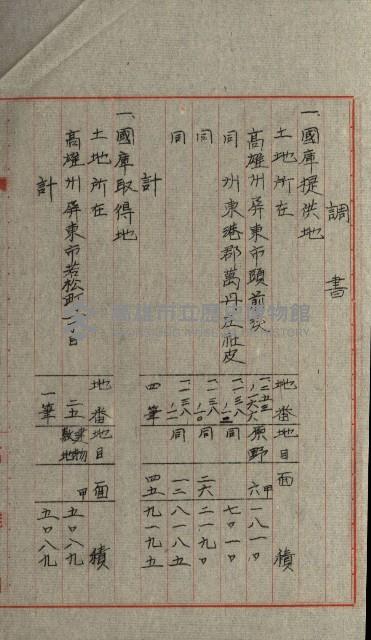 調書
一、國庫提供地
土地所在 地番 地目 面積
高雄州屏東市頭前溪 原野 六甲一八一〇
同 州東港郡萬丹庄社皮 一一三八 同 七〇一〇
同 一一三八ノ一〇 同 二六二一九〇
同 一一三八ノ一二 同 一二八一八五
計 四筆 四五九一九五
一、國庫取得地
土地所在 地番 地目 面積
高雄州屏東市若松町一丁目 二五 建物敷地 甲五〇八九
計 一筆 五〇八九
高雄市立歷史博物館